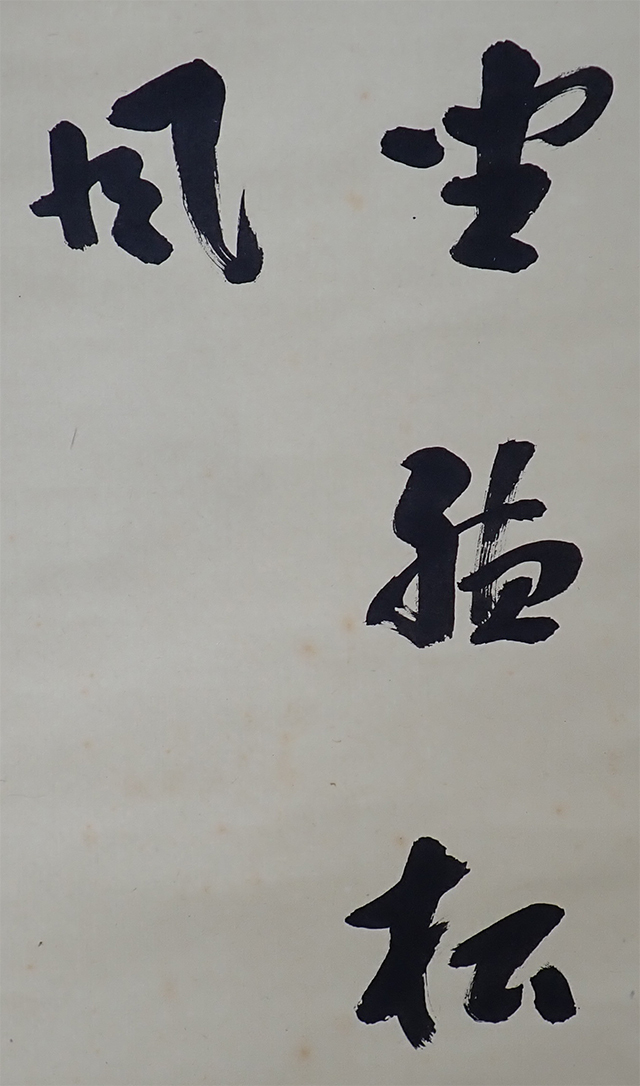 坐聽松
風